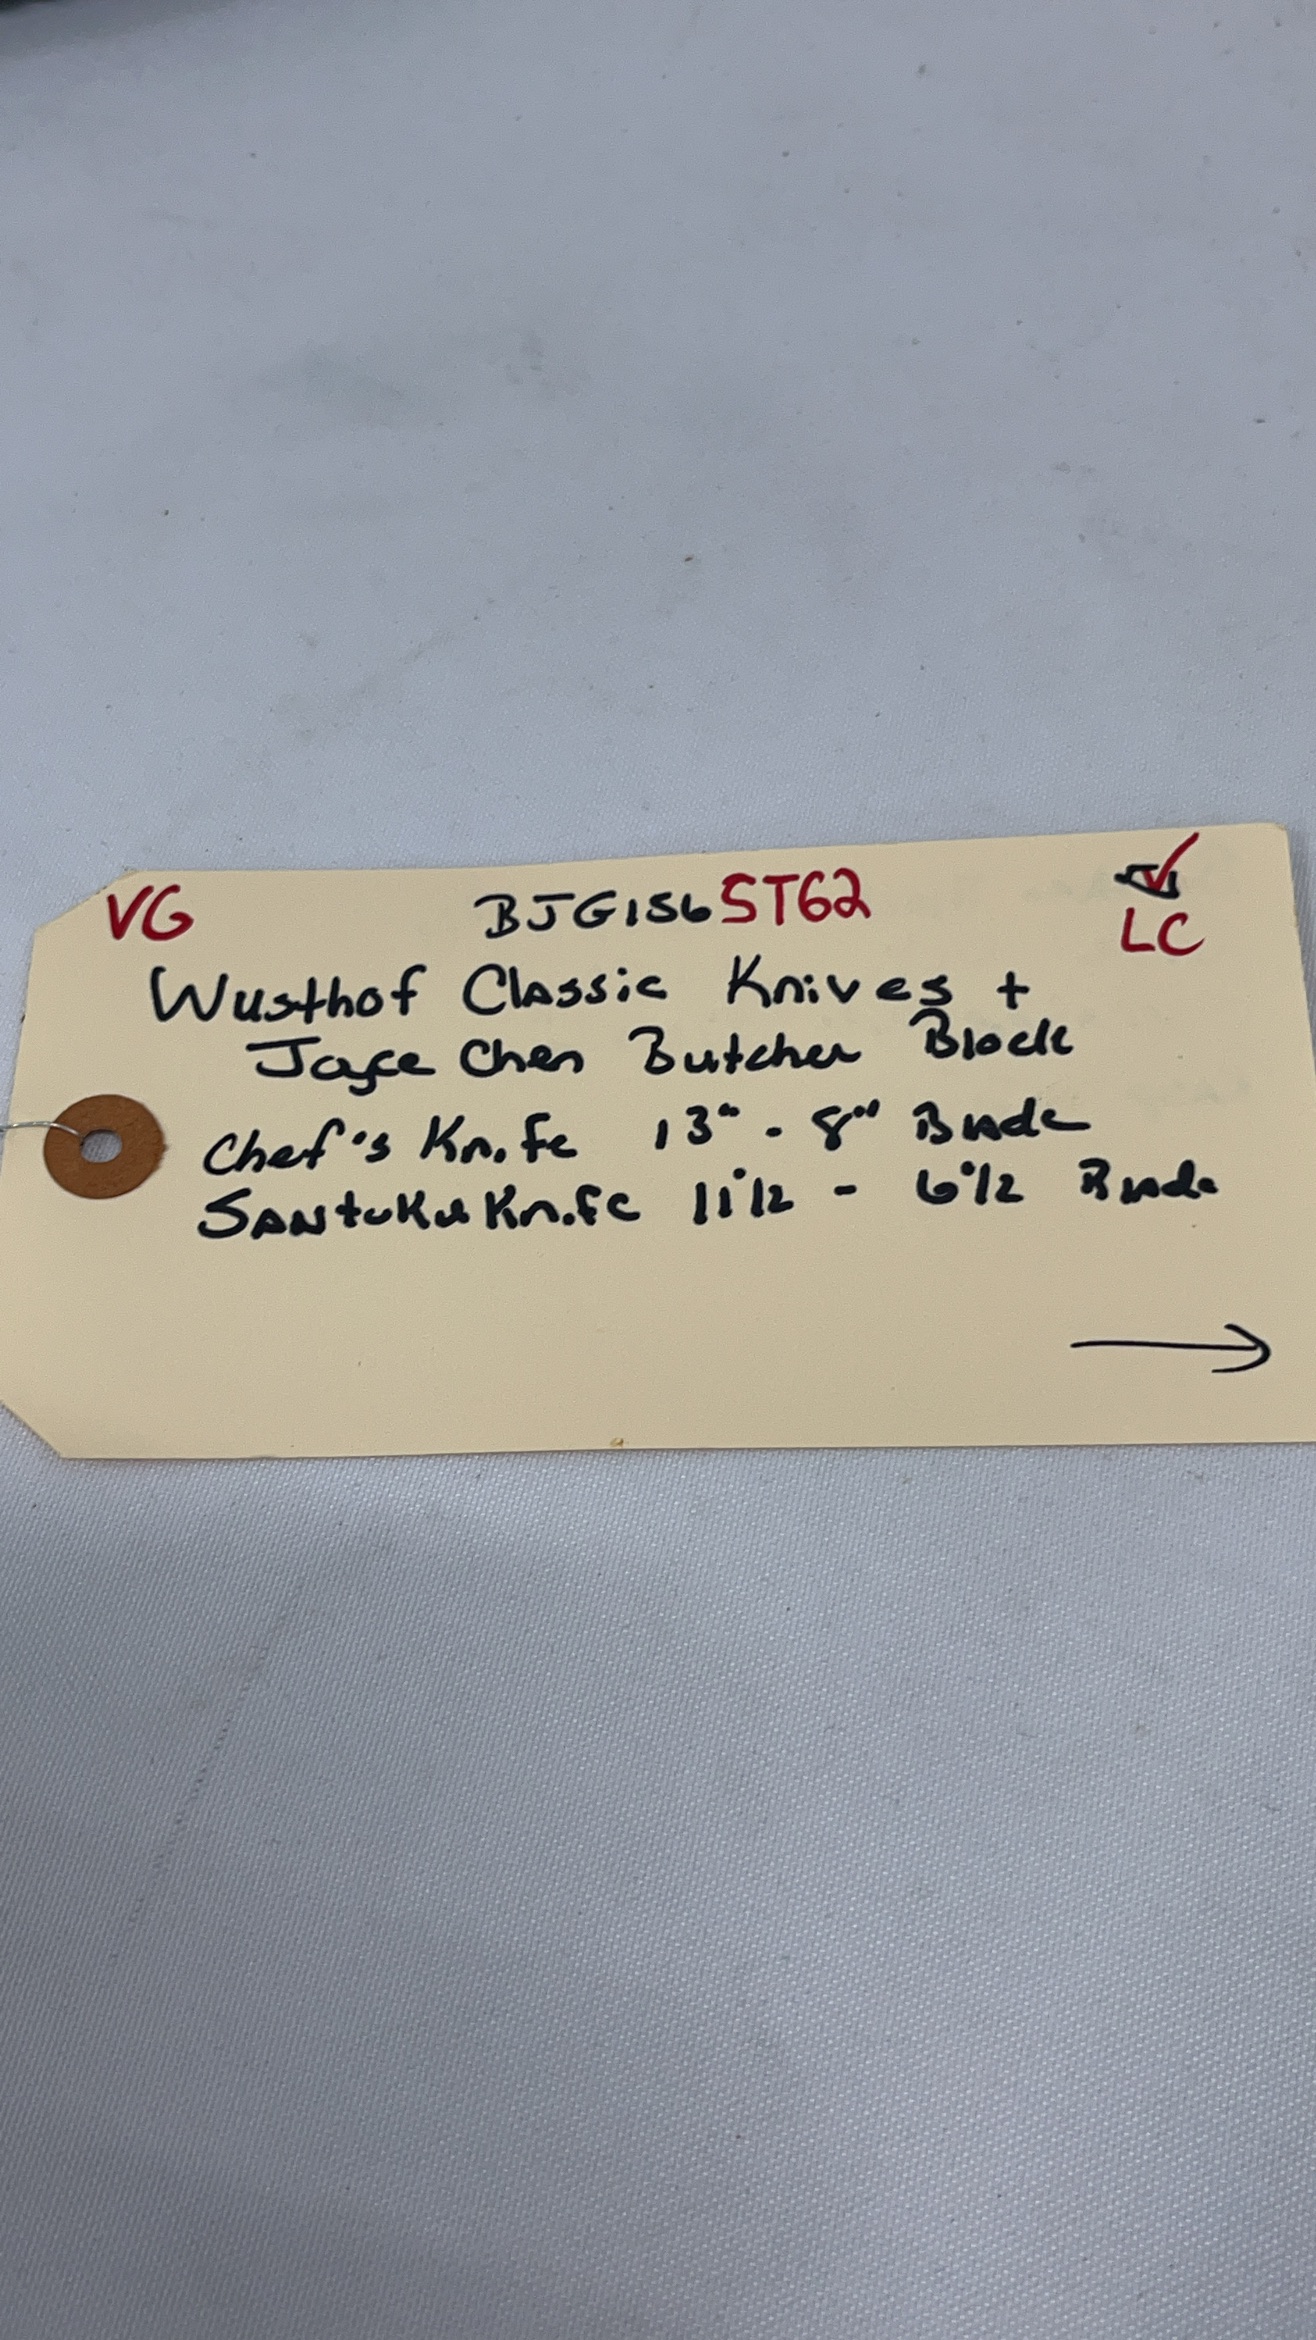 VG BJG156 ST62 LC
Wusthof Classic Knives +
Joyce Chen Butcher Block
Chef's Knife 13" - 8" Blade
SANtuku Knife 11 1/2 - 6 1/2 Blade